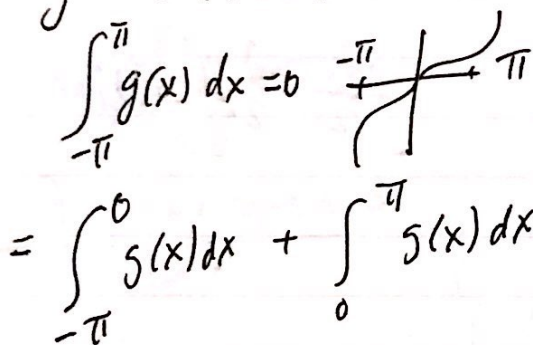 ∫_{-π}^{π} g(x) dx = 0   -π   π
= ∫_{-π}^{0} g(x) dx + ∫_{0}^{π} g(x) dx